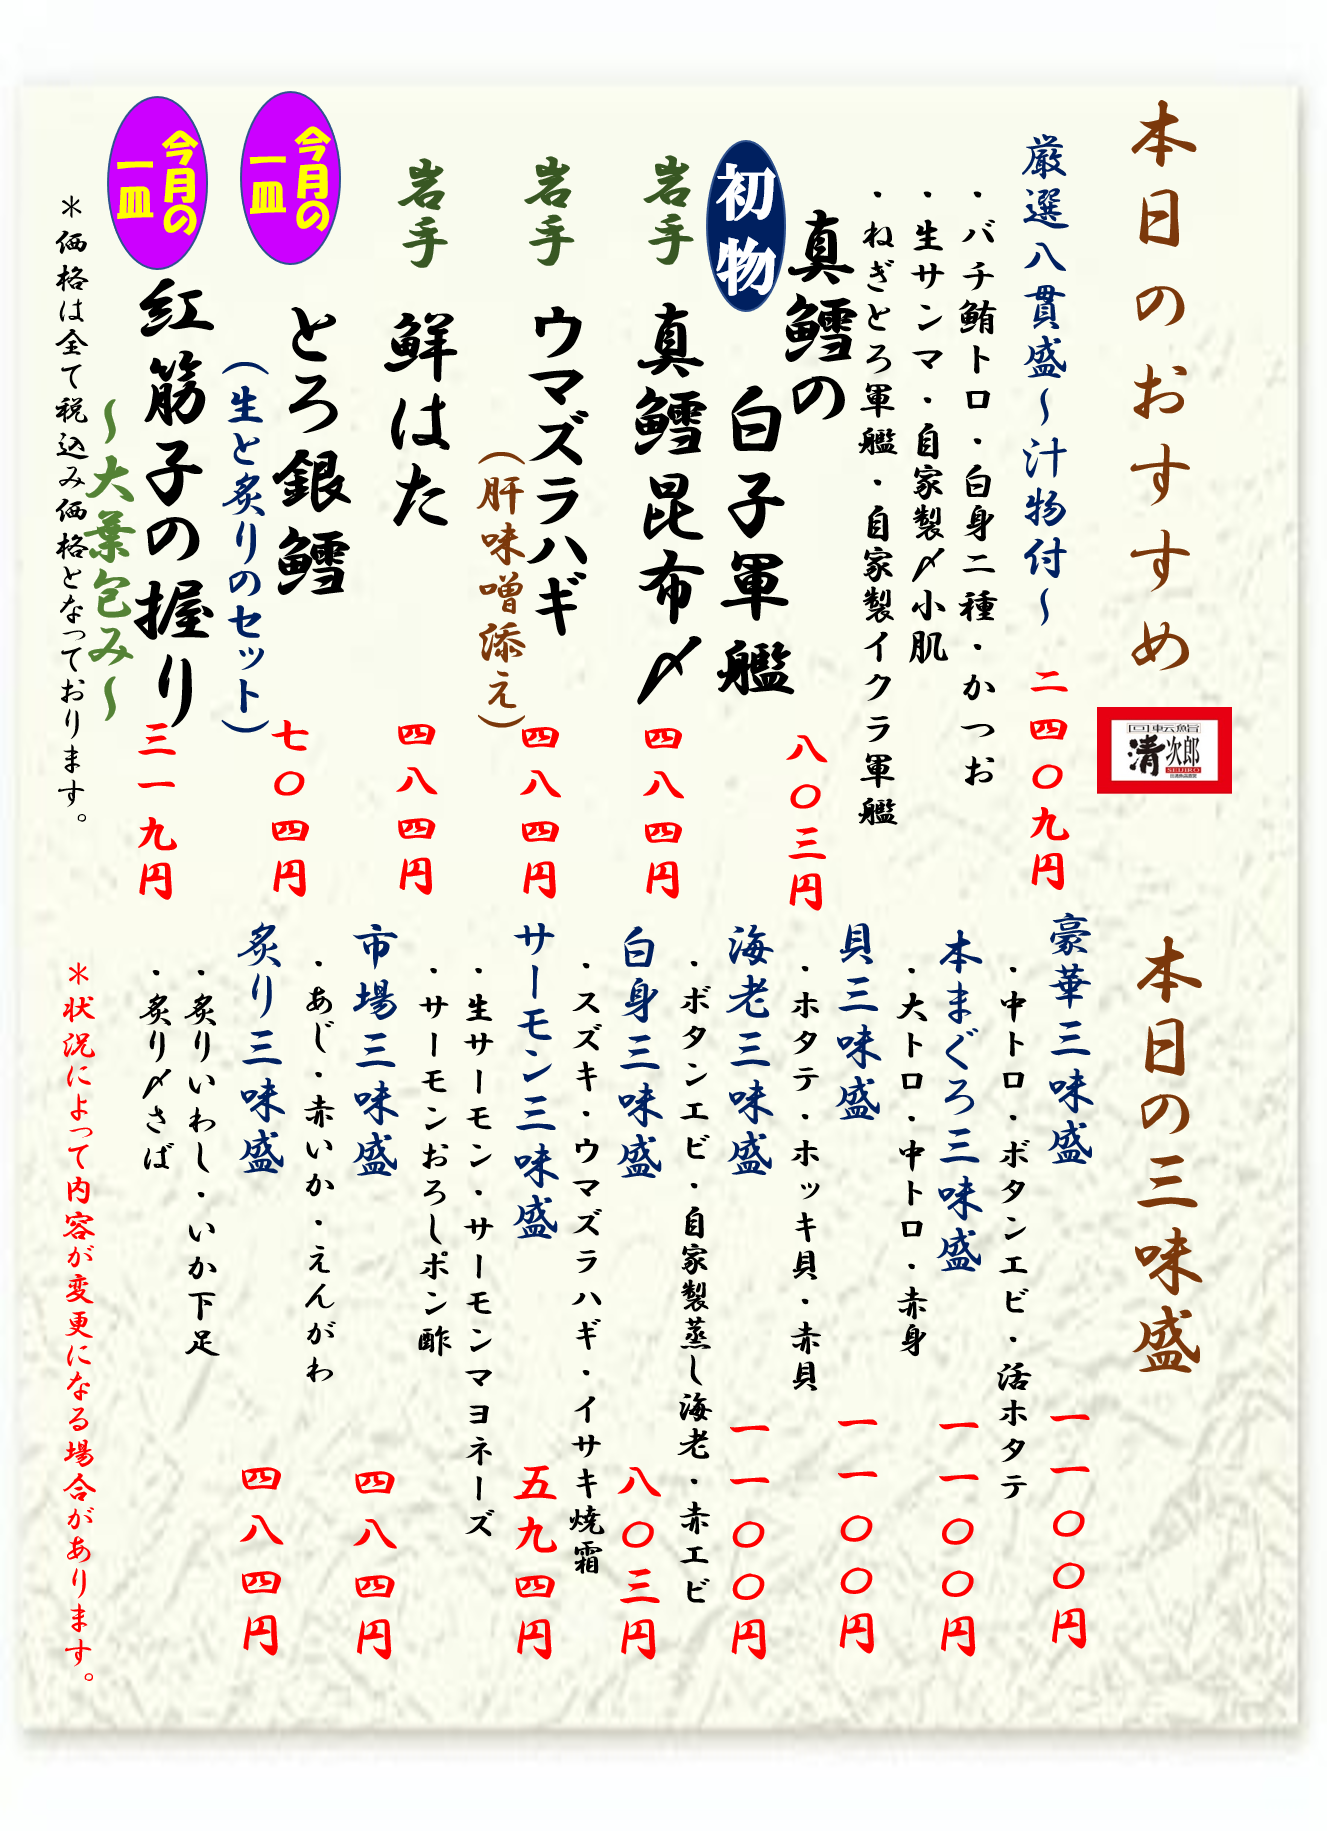 本日のおすすめ
回転鮨
清次郎
SEIJIRO
厳選八貫盛～汁物付～ 二四〇九円
・バチ鮪トロ・白身二種・かつお
・生サンマ・自家製〆小肌
・ねぎとろ軍艦・自家製イクラ軍艦
初物
真鱈の
白子軍艦 八〇三円
岩手 真鱈昆布〆 四八四円
岩手 ウマズラハギ 四八四円
(肝味噌添え)
岩手 鮮はた 四八四円
今月の
一皿
とろ銀鱈 七〇四円
(生と炙りのセット)
今月の
一皿
紅筋子の握り 三一九円
～大葉包み～
＊価格は全て税込み価格となっております。
本日の三味盛
豪華三味盛 一一〇〇円
・中トロ・ボタンエビ・活ホタテ
本まぐろ三味盛 一一〇〇円
・大トロ・中トロ・赤身
貝三味盛 一一〇〇円
・ホタテ・ホッキ貝・赤貝
海老三味盛 一一〇〇円
・ボタンエビ・自家製蒸し海老・赤エビ
白身三味盛 八〇三円
・スズキ・ウマズラハギ・イサキ焼霜
サーモン三味盛 五九四円
・生サーモン・サーモンマヨネーズ
・サーモンおろしポン酢
市場三味盛 四八四円
・あじ・赤いか・えんがわ
炙り三味盛 四八四円
・炙りいわし・いか下足
・炙り〆さば
＊状況によって内容が変更になる場合があります。